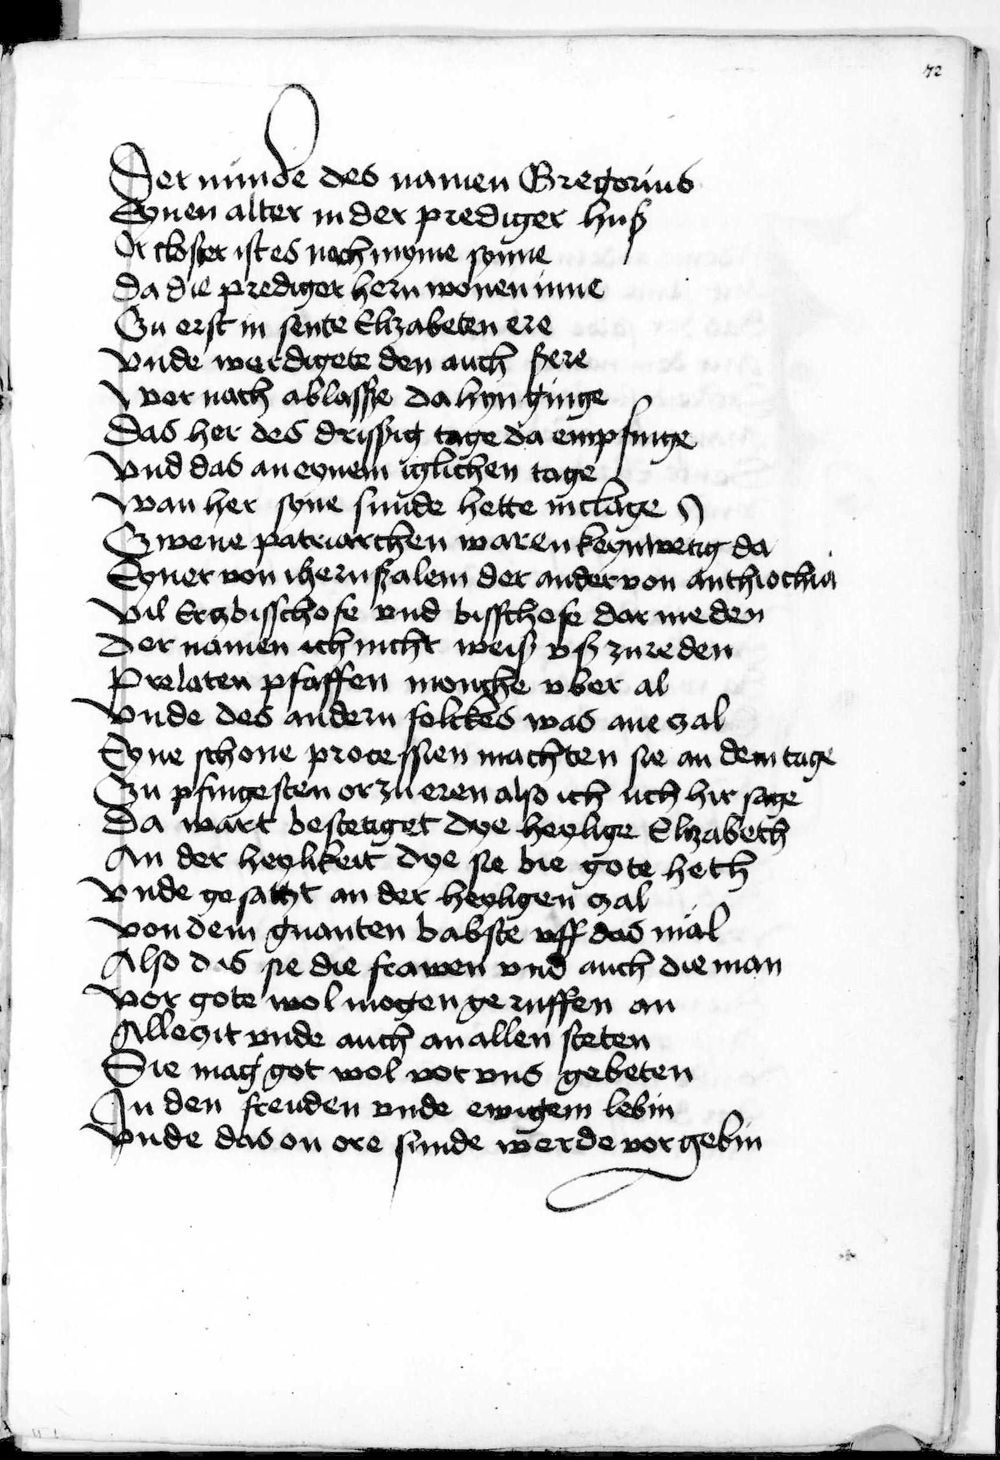 72
Der nunde des namen Gregorius
Eynen alter in der prediger huß
Or closter ist es noch myme synne
Da die prediger hern wonen inne
Zu erst in sente Elizabeten ere
vnde werdigete den auch sere
wer nach ablasße da hyn ginge
Das her des drißig tage da empfinge
vnd das an eynem iglichen tage
wan her syne sunde hette in clage
Zwene patriarchen waren keynwetig da
Eyner von iherußalem der ander von anthiochia
vil Erczbisschofe vnd bisschofe dar nieden
Der namen ich nicht weiß vß zu reden
Prelaten pfaffen monche vber al
vnde des andern folckes was ane czal
Eyne schone processien machten sie an dem tage
Zu pfingesten or zu eren also ich uch hir sage
Da wart bestetiget dye heylige Elizabeth
An der heylikeit dye sie bie gote heth
vnde gesatzt an der heyligen czal
von dem gnanten babste vff das mal
Also das sie die frawen vnd auch die man
vor gote wol mogen geruffen an
Alleczit vnde auch an allen steten
Sie mag got wol vor vns gebeten
In den freuden vnde ewigem lebin
vnde das on ore sunde werde vorgebin